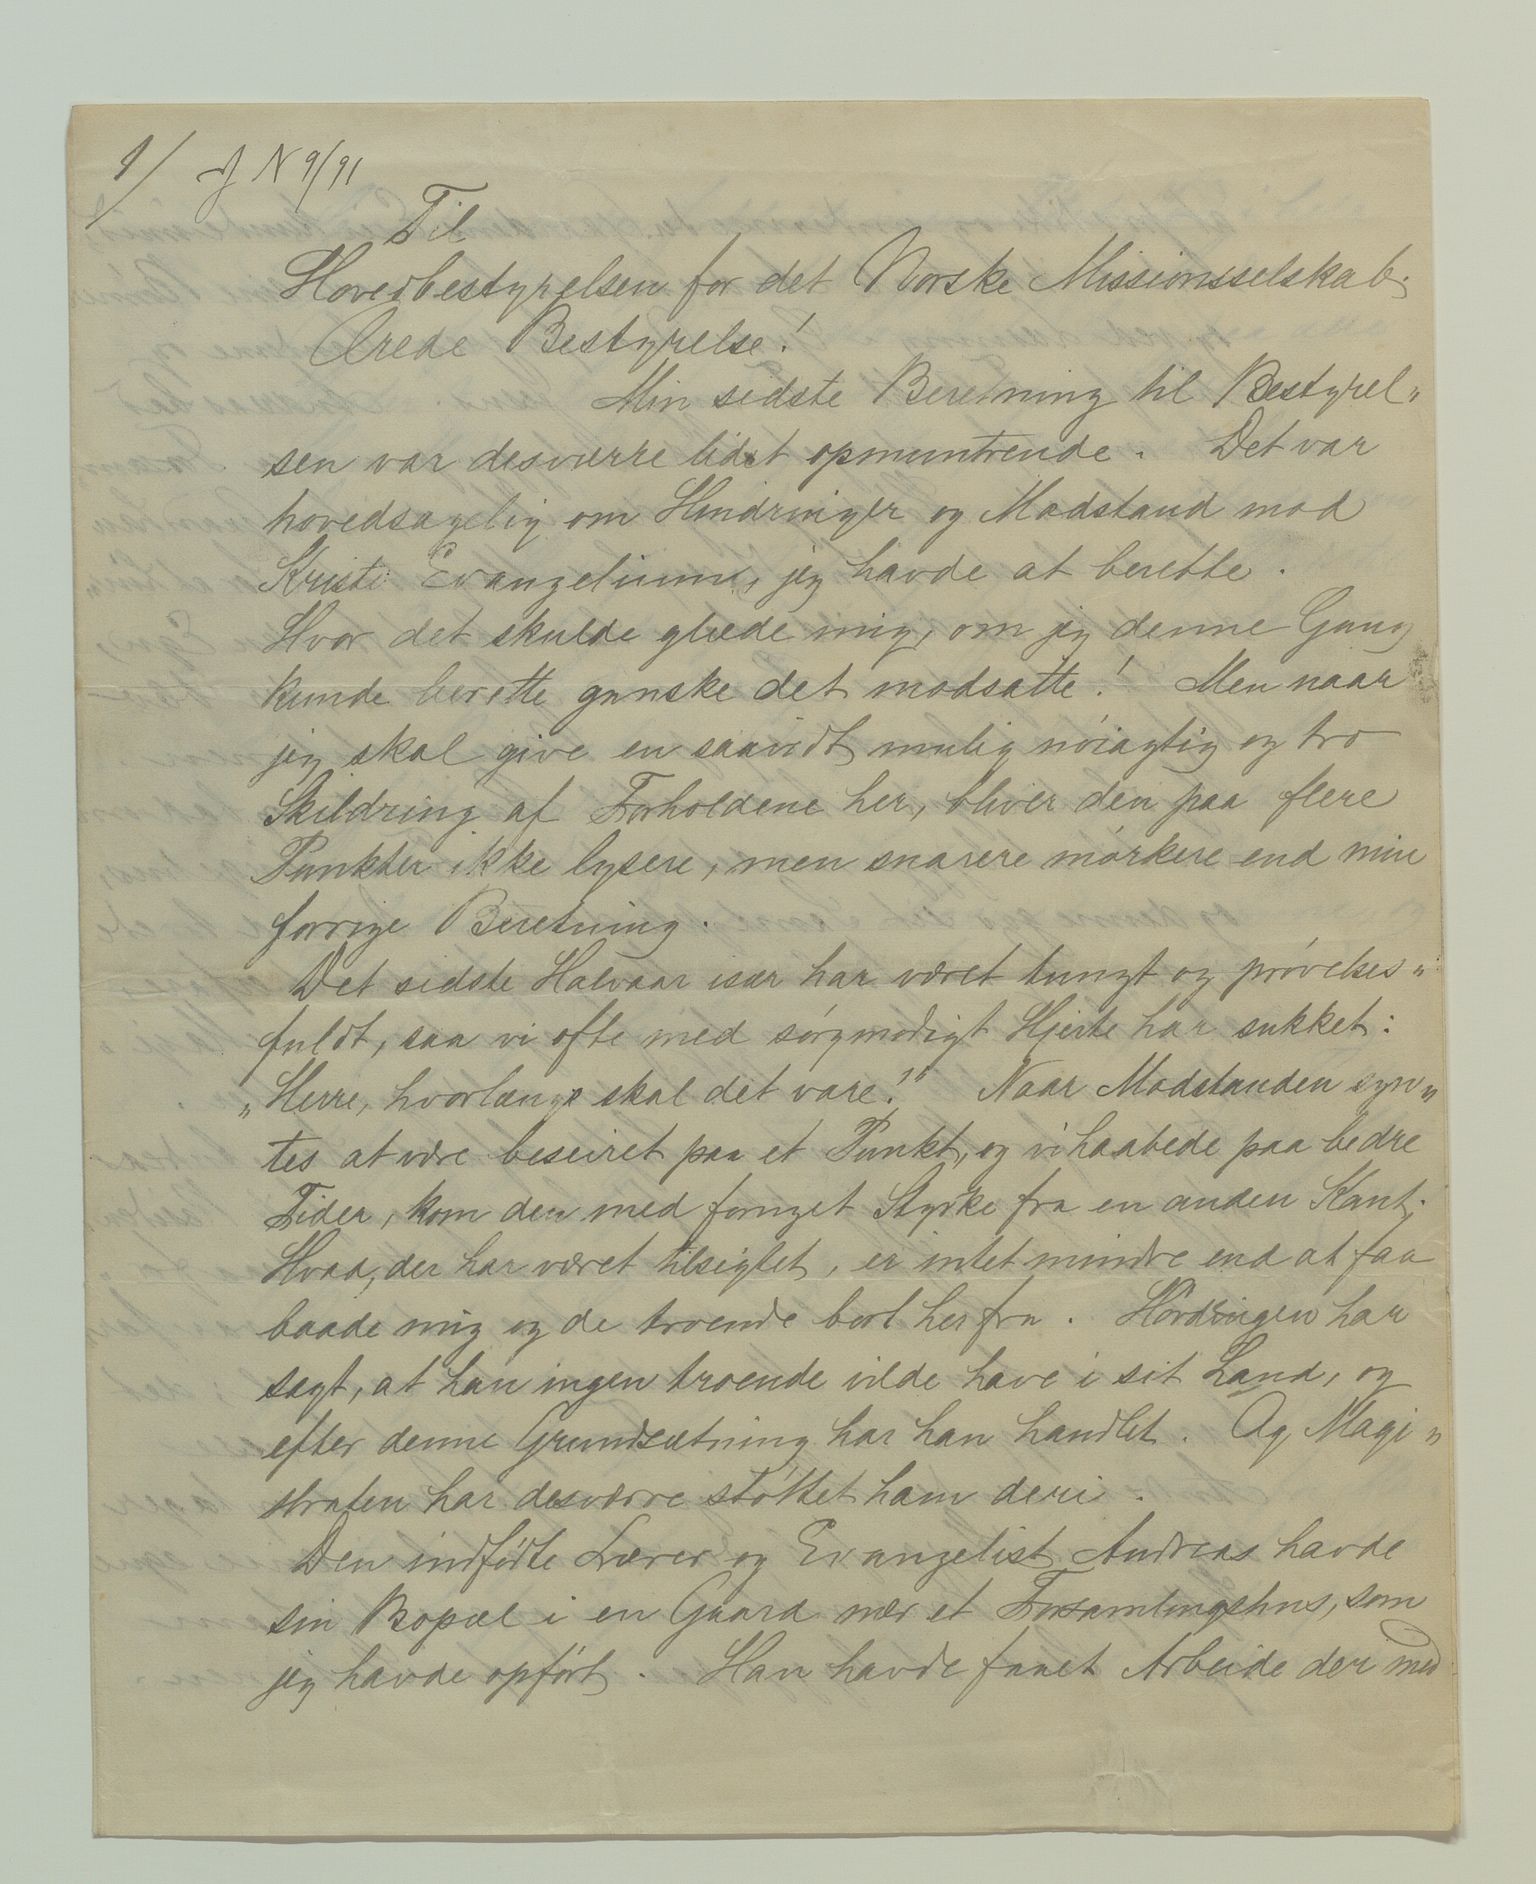 1/ J N 9/91
Til
Hovedbestyrelsen for det Norske Missionsselskab.
Ærede Bestyrelse!
Min sidste Beretning til Bestyrel„
sen var desværre lidet opmuntrende. Det var
hovedsagelig om Hindringer og Modstand mod
Kristi Evangelium, jeg havde at berette.
Hvor det skulde glæde mig, om jeg denne Gang
kunde berette ganske det modsatte! Men naar
jeg skal give en saavidt mulig nöiagtig og tro
Skildring af Forholdene her, bliver den paa flere
Punkter ikke lysere, men snarere mörkere end min
forrige Beretning.
Det sidste Halvaar især har været tungt og prövelses„
fuldt, saa vi ofte med sörgmodigt Hjerte har sukket:
„Herre, hvorlænge skal det vare!" Naar Modstanden syn„
tes at være beseiret paa et Punkt, og vi haabede paa bedre
Tider, kom den med fornyet Styrke fra en anden Kant.
Hvad, der har været tilsigtet, er intet mindre end at faa
baade mig og de troende bort herfra. Hövdingen har
sagt, at han ingen troende vilde have i sit Land, og
efter denne Grundsætning har han handlet. Og Magi„
straten har desværre stöttet ham deri.
Den indfödte Lærer og Evangelist Andreas havde
sin Bopæl i en Gaard nær et Forsamlingshus, som
jeg havde opfört. Han havde faaet Arbeide der med